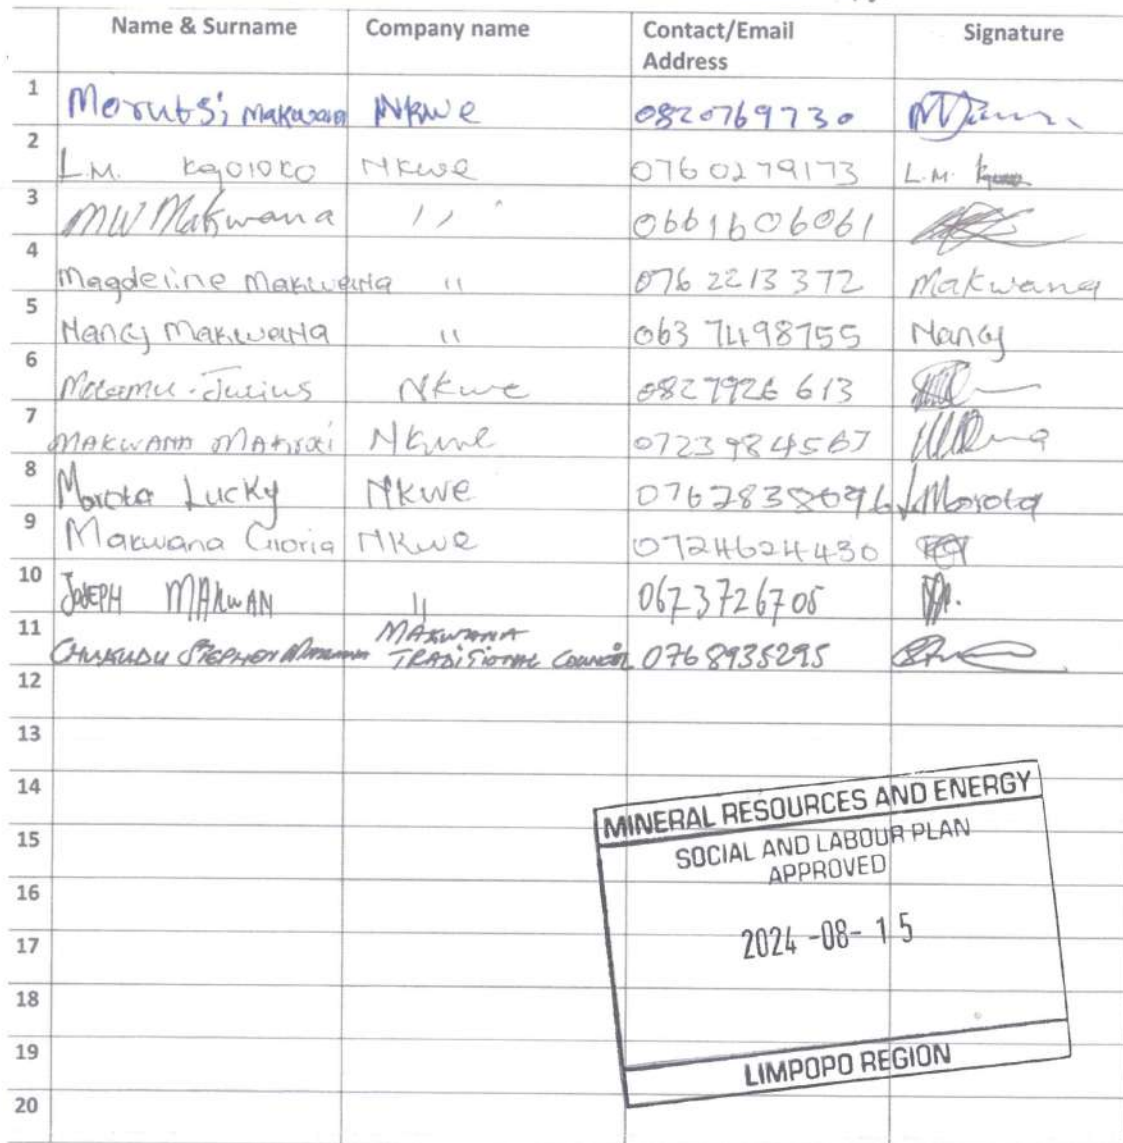 Name & Surname Company name Contact/Email Address Signature
1 Morutsi Makwana Nkwe 0820769730
2 L.M. Kgoloko Nkwe 0760279173 L.M.
3 MW Makwana ,, 0661606061
4 Magdeline Makwana " 076 2213 372 Makwana
5 Nancy Makwana " 063 7498755 Nancy
6 Julius Nkwe 0827926 613
7 MAKWANA Nkwe 0723984567
8 Morota Lucky Nkwe Morota
9 Makwana Gloria Nkwe 0724624430
10 JOSEPH MAKWAN " 0673726705
11 STEPHEN MAKWANA TRADITIONAL COUNCIL 0768935295
12
13
14
15
16
17
18
19
20
MINERAL RESOURCES AND ENERGY
SOCIAL AND LABOUR PLAN
APPROVED
2024 -08- 15
LIMPOPO REGION